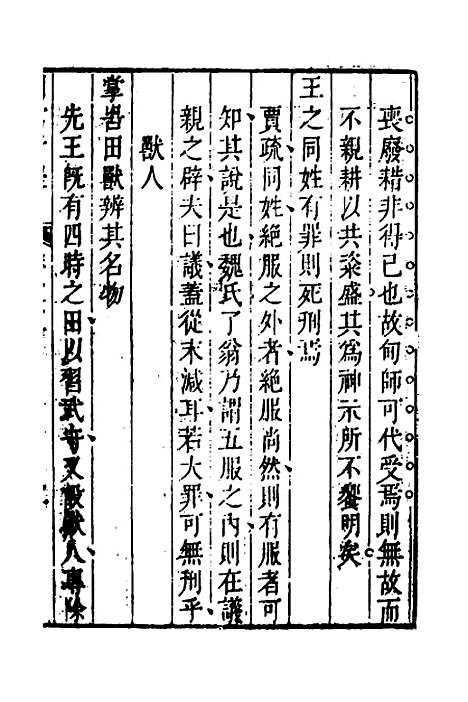 喪廢耤非得已也故甸師可代受焉則無故而
不親耕以共粢盛其為神示所不饗明矣
王之同姓有罪則死刑焉
賈疏同姓絕服之外者絕服尚然則有服者可
知其說是也魏氏了翁乃謂五服之內則在議
親之辟夫曰議蓋從末減耳若大罪可無刑乎
獸人
掌罟田獸辨其名物
先王旣有四時之田以習武奇又設獸人專除